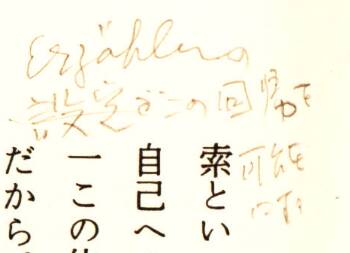 Erzählerの
設定がこの回帰を
可能に
索とい
自己へ
一この
だから